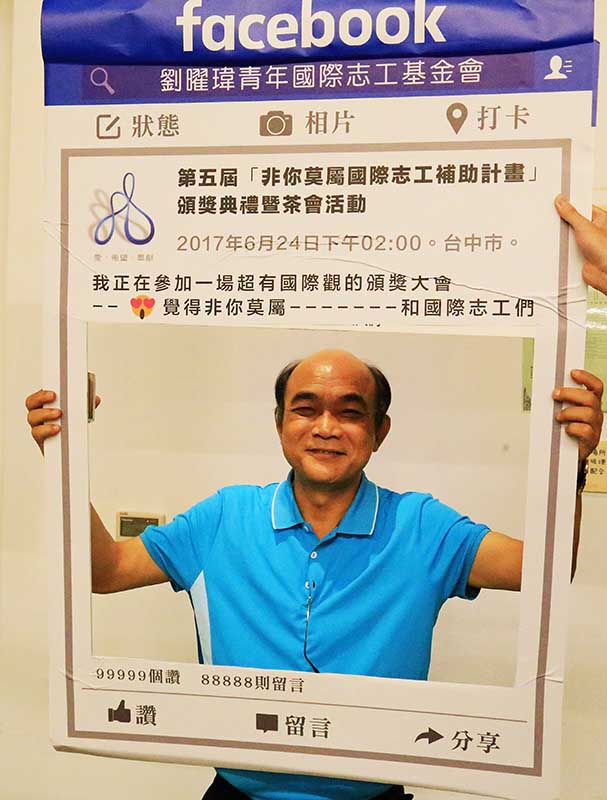 facebook
劉曜瑋青年國際志工基金會
狀態 相片 打卡
第五屆「非你莫屬國際志工補助計畫」
頒獎典禮暨茶會活動
2017年6月24日下午02:00。台中市。
愛·希望·奉獻
我正在參加一場超有國際觀的頒獎大會
-- 😍覺得非你莫屬-------和國際志工們
99999個讚 88888則留言
讚 留言 分享